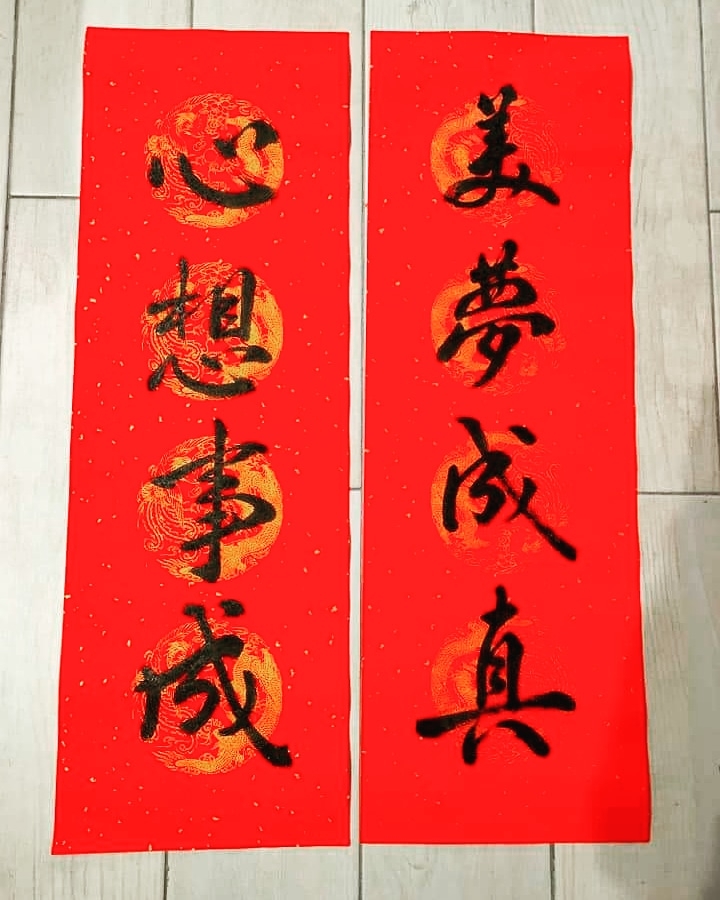 美夢成真
心想事成